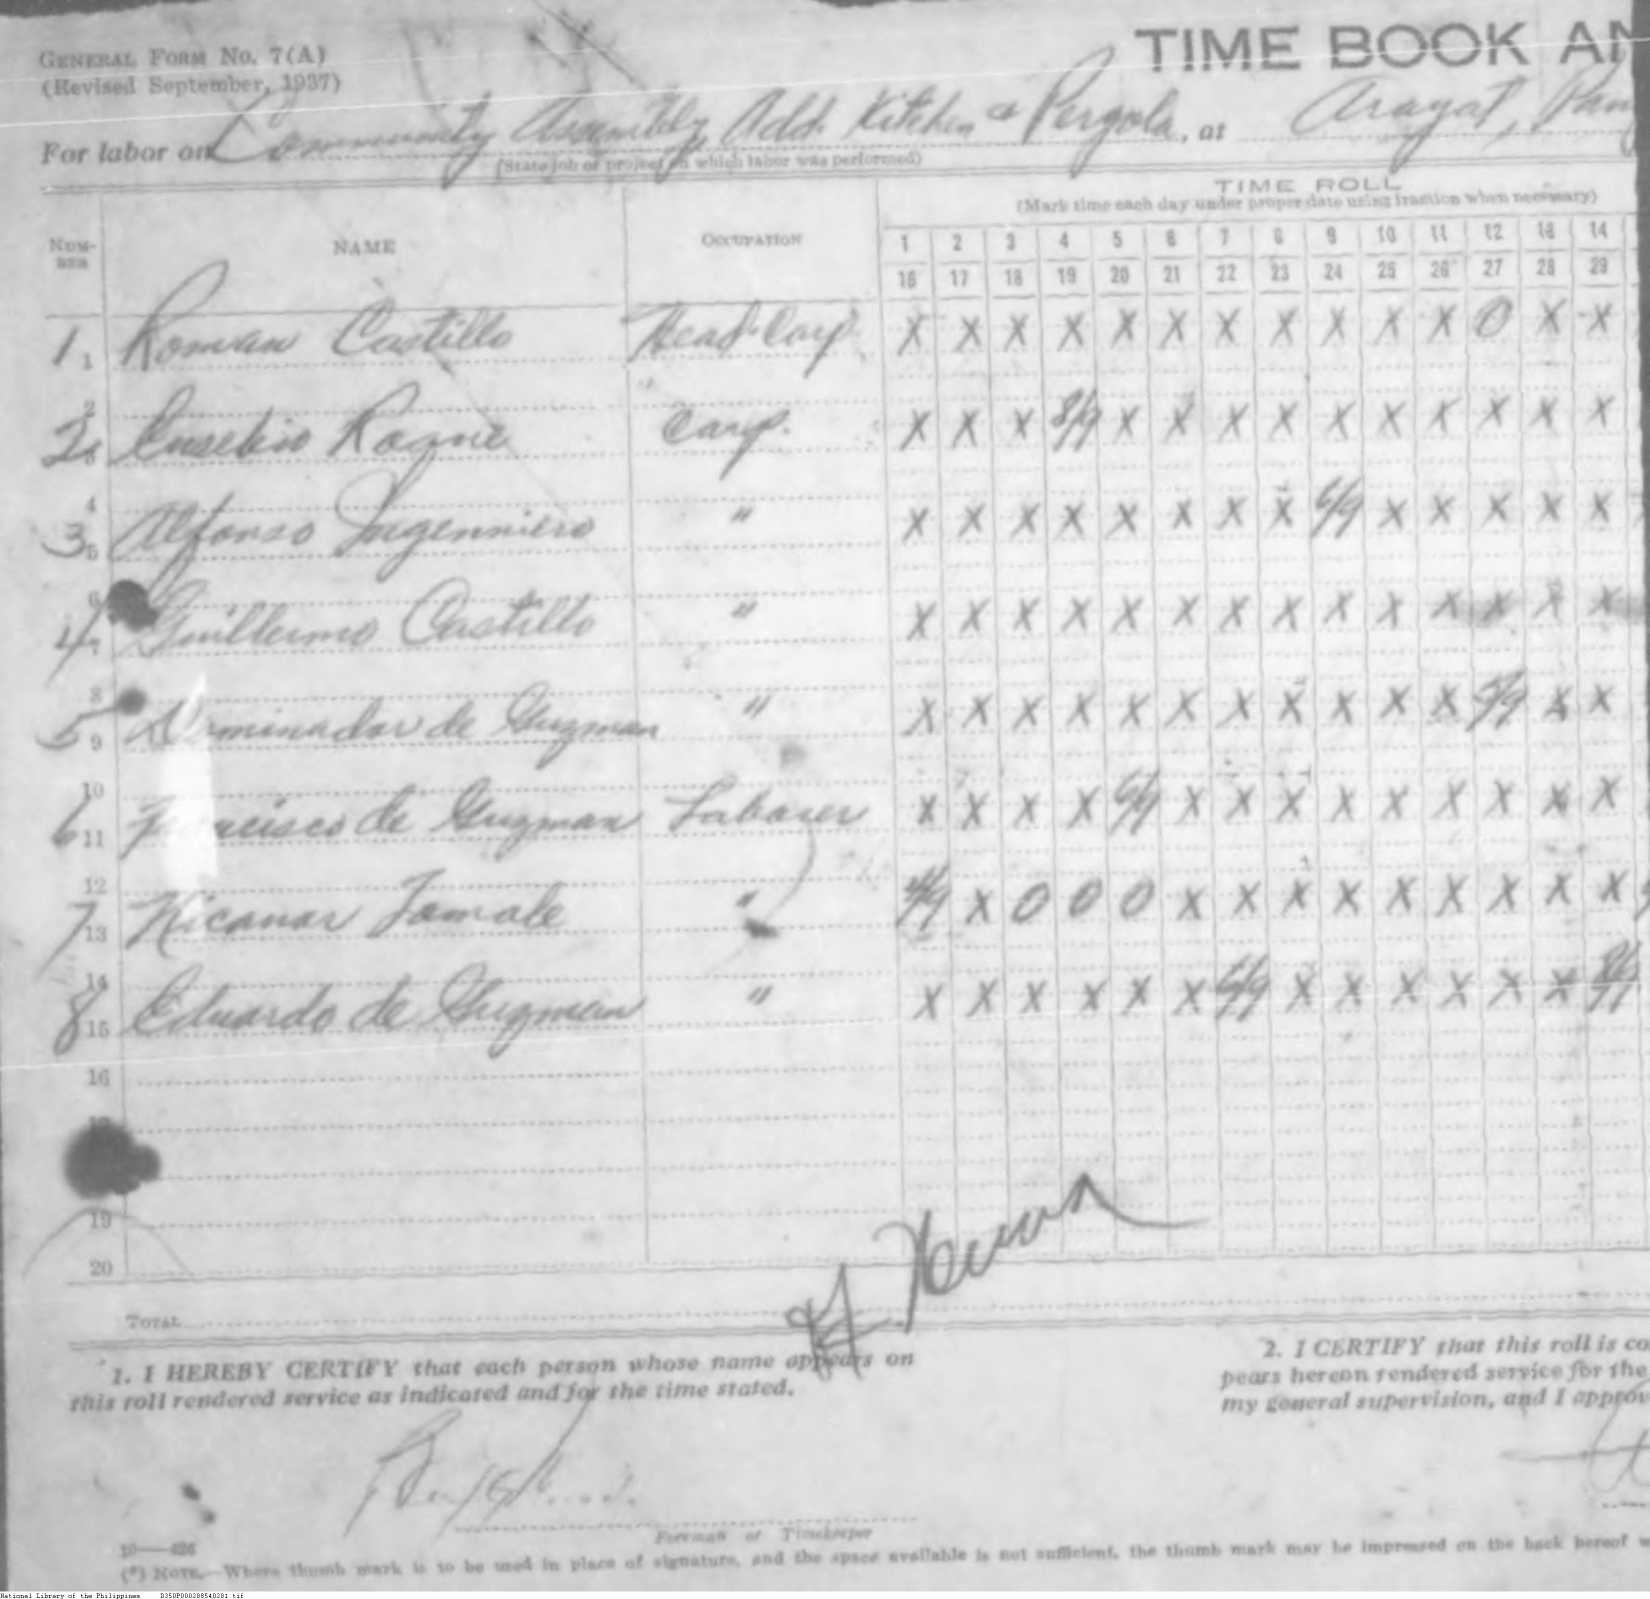 TIME BOOK AN
GENERAL FORM NO. 7(A)
(Revised September, 1937)
For labor on Community Assembly, Add. Kitchen & Pergola, at Arayat, Pam
(State job or project on which labor was performed)
TIME ROLL
(Mark time each day under proper date using fraction when necessary)
NUM-BER NAME OCCUPATION
1 2 3 4 5 6 7 8 9 10 11 12 13 14
16 17 18 19 20 21 22 23 24 25 26 27 28 29
1. 1 Roman Castillo Head Carp. X X X X X X X X X X X O X X
2
2. 3 Eusebio Roque Carp. X X X 8/9 X X X X X X X X X X
4
3. 5 Alfonso Ingenniero " X X X X X X X X 6/9 X X X X X
6
4 7 Guillermo Castillo " X X X X X X X X X X X X X X
8
5 9 minador de Guzman " X X X X X X X X X X X 5/9 X X
10
6 11 Francisco de Guzman Laborer X X X X 6/9 X X X X X X X X X
12
7 13 Nicanor Tamale " 4/9 X O O O X X X X X X X X X
14
8 15 Eduardo de Guzman " X X X X X X 6/9 X X X X X X 8/9
16
19
20
TOTAL
1. I HEREBY CERTIFY that each person whose name appears on
this roll rendered service as indicated and for the time stated.
2. I CERTIFY that this roll is co
pears hereon rendered service for the
my general supervision, and I approv
Foreman or Timekeeper
10—426
(*) NOTE.—Where thumb mark is to be used in place of signature, and the space available is not sufficient, the thumb mark may be impressed on the back hereof w
National Library of the Philippines D350P000208540201.tif